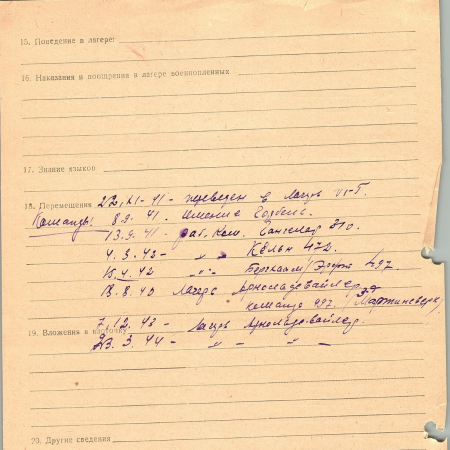 15. Поведение в лагере:
16. Наказания и поощрения в лагере военнопленных
17. Знание языков
18. Перемещения 22.XI-41 - переведен в лагерь VI-Г.
Команды: 8.9.41. Имение
13.9.41 - раб. ком. 310.
4.3.42 - " " Кёльн 472.
15.4.42 " " Бергхайм/Эрфт 497.
13.8.40 лагерь Арнольдсвайлер
команда 497
7.12.43 - лагерь Арнольдсвайлер.
19. Вложения в карточку
23.3.44 - " - " -
20. Другие сведения